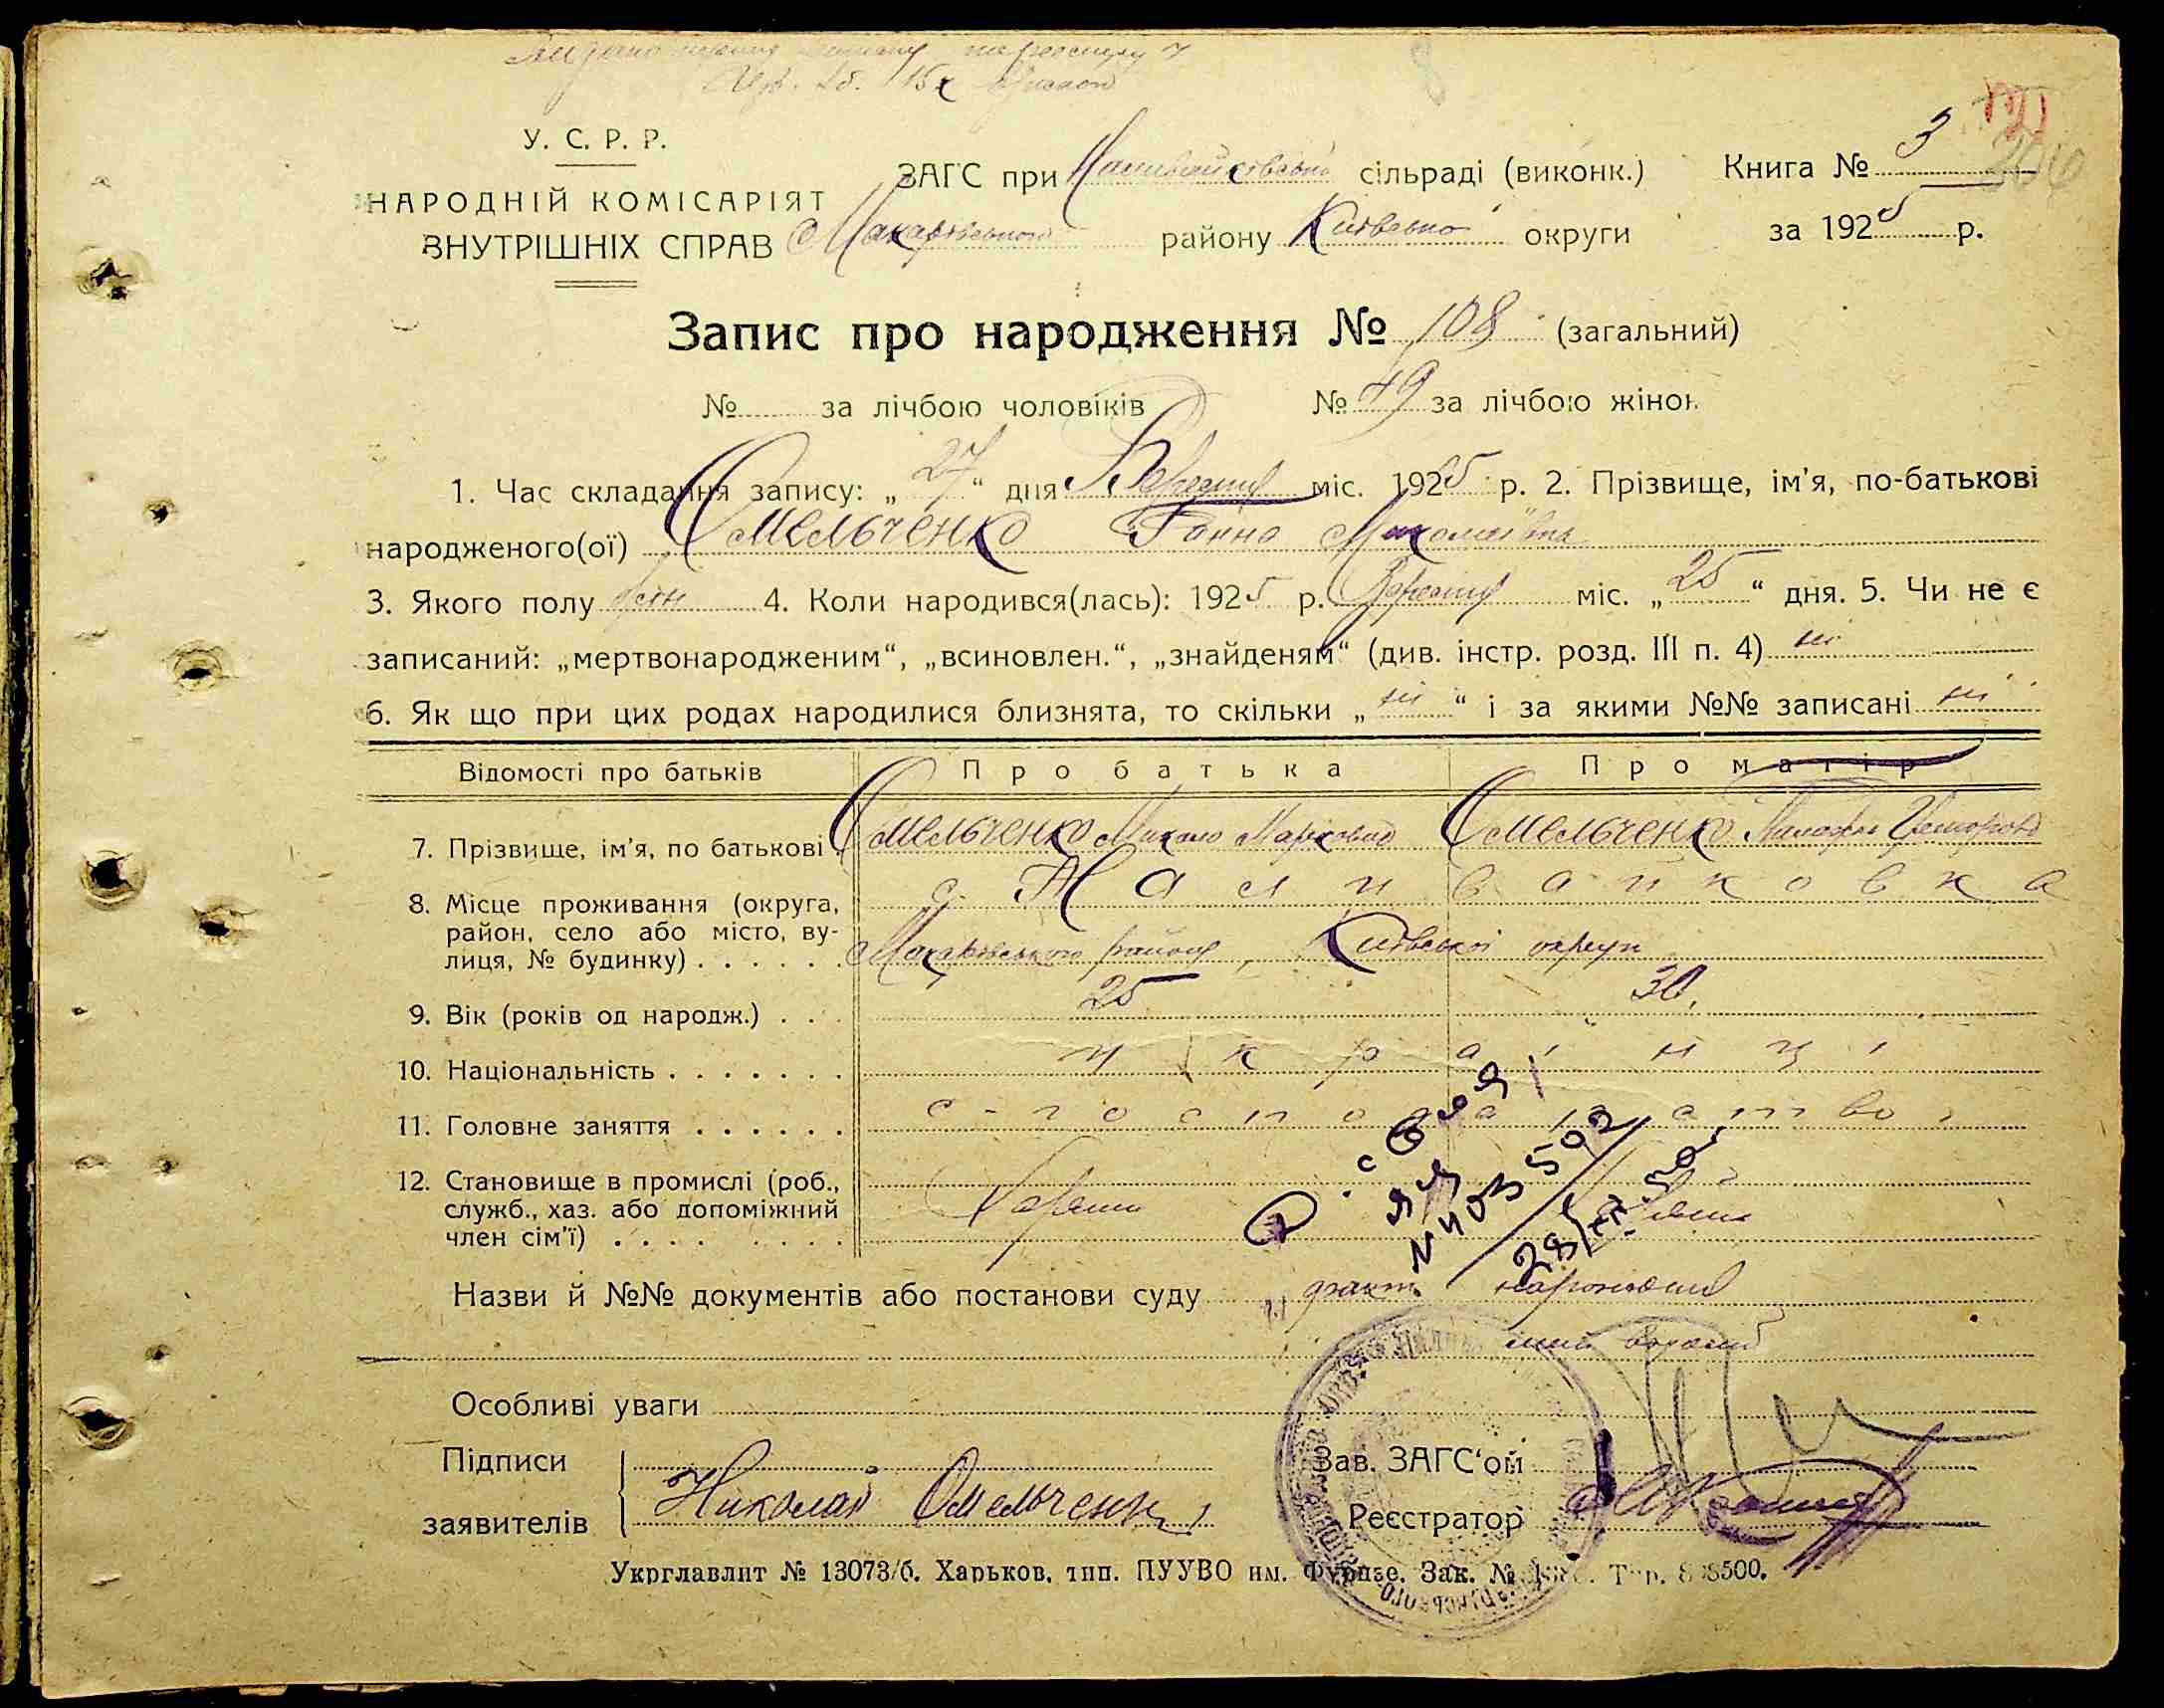 У. С. Р. Р.
ЗАГС при Наливайківській сільраді (виконк.) Книга № 3
НАРОДНІЙ КОМІСАРІЯТ
ВНУТРІШНІХ СПРАВ Макарівського району Київсько округи за 1925 р.
Запис про народження № 108 (загальний)
№ за лічбою чоловіків № 49 за лічбою жінок
1. Час складання запису: „27“ дня Вересня міс. 1925 р. 2. Прізвище, ім'я, по-батькові
народженого(ої) Омельченко Ганна Миколаївна
3. Якого полу жін 4. Коли народився(лась): 1925 р. Вересня міс. „25“ дня. 5. Чи не є
записаний: „мертвонародженим“, „всиновлен.“, „знайденям“ (див. інстр. розд. III п. 4) ні
6. Як що при цих родах народилися близнята, то скільки „ні“ і за якими №№ записані ні
Відомості про батьків Про батька Про матір
7. Прізвище, ім'я, по батькові Омельченко Микола Маркович Омельченко
8. Місце проживання (округа, с. Наливайковка
район, село або місто, ву-
лиця, № будинку) Макарівського району, Київської округи
9. Вік (років од народж.) 25 30.
10. Національність українці
11. Головне заняття с-господарство
12. Становище в промислі (роб.,
служб., хаз. або допоміжний
член сім'ї)
ЯЛ
N 403502
28/XII 50
Назви й №№ документів або постанови суду факт народження
Особливі уваги
Підписи Зав. ЗАГС'ом
заявителів Николай Омельченко Реєстратор
Укрглавлит № 13073/б. Харьков, тип. ПУУВО им. Фрунзе. Зак. №